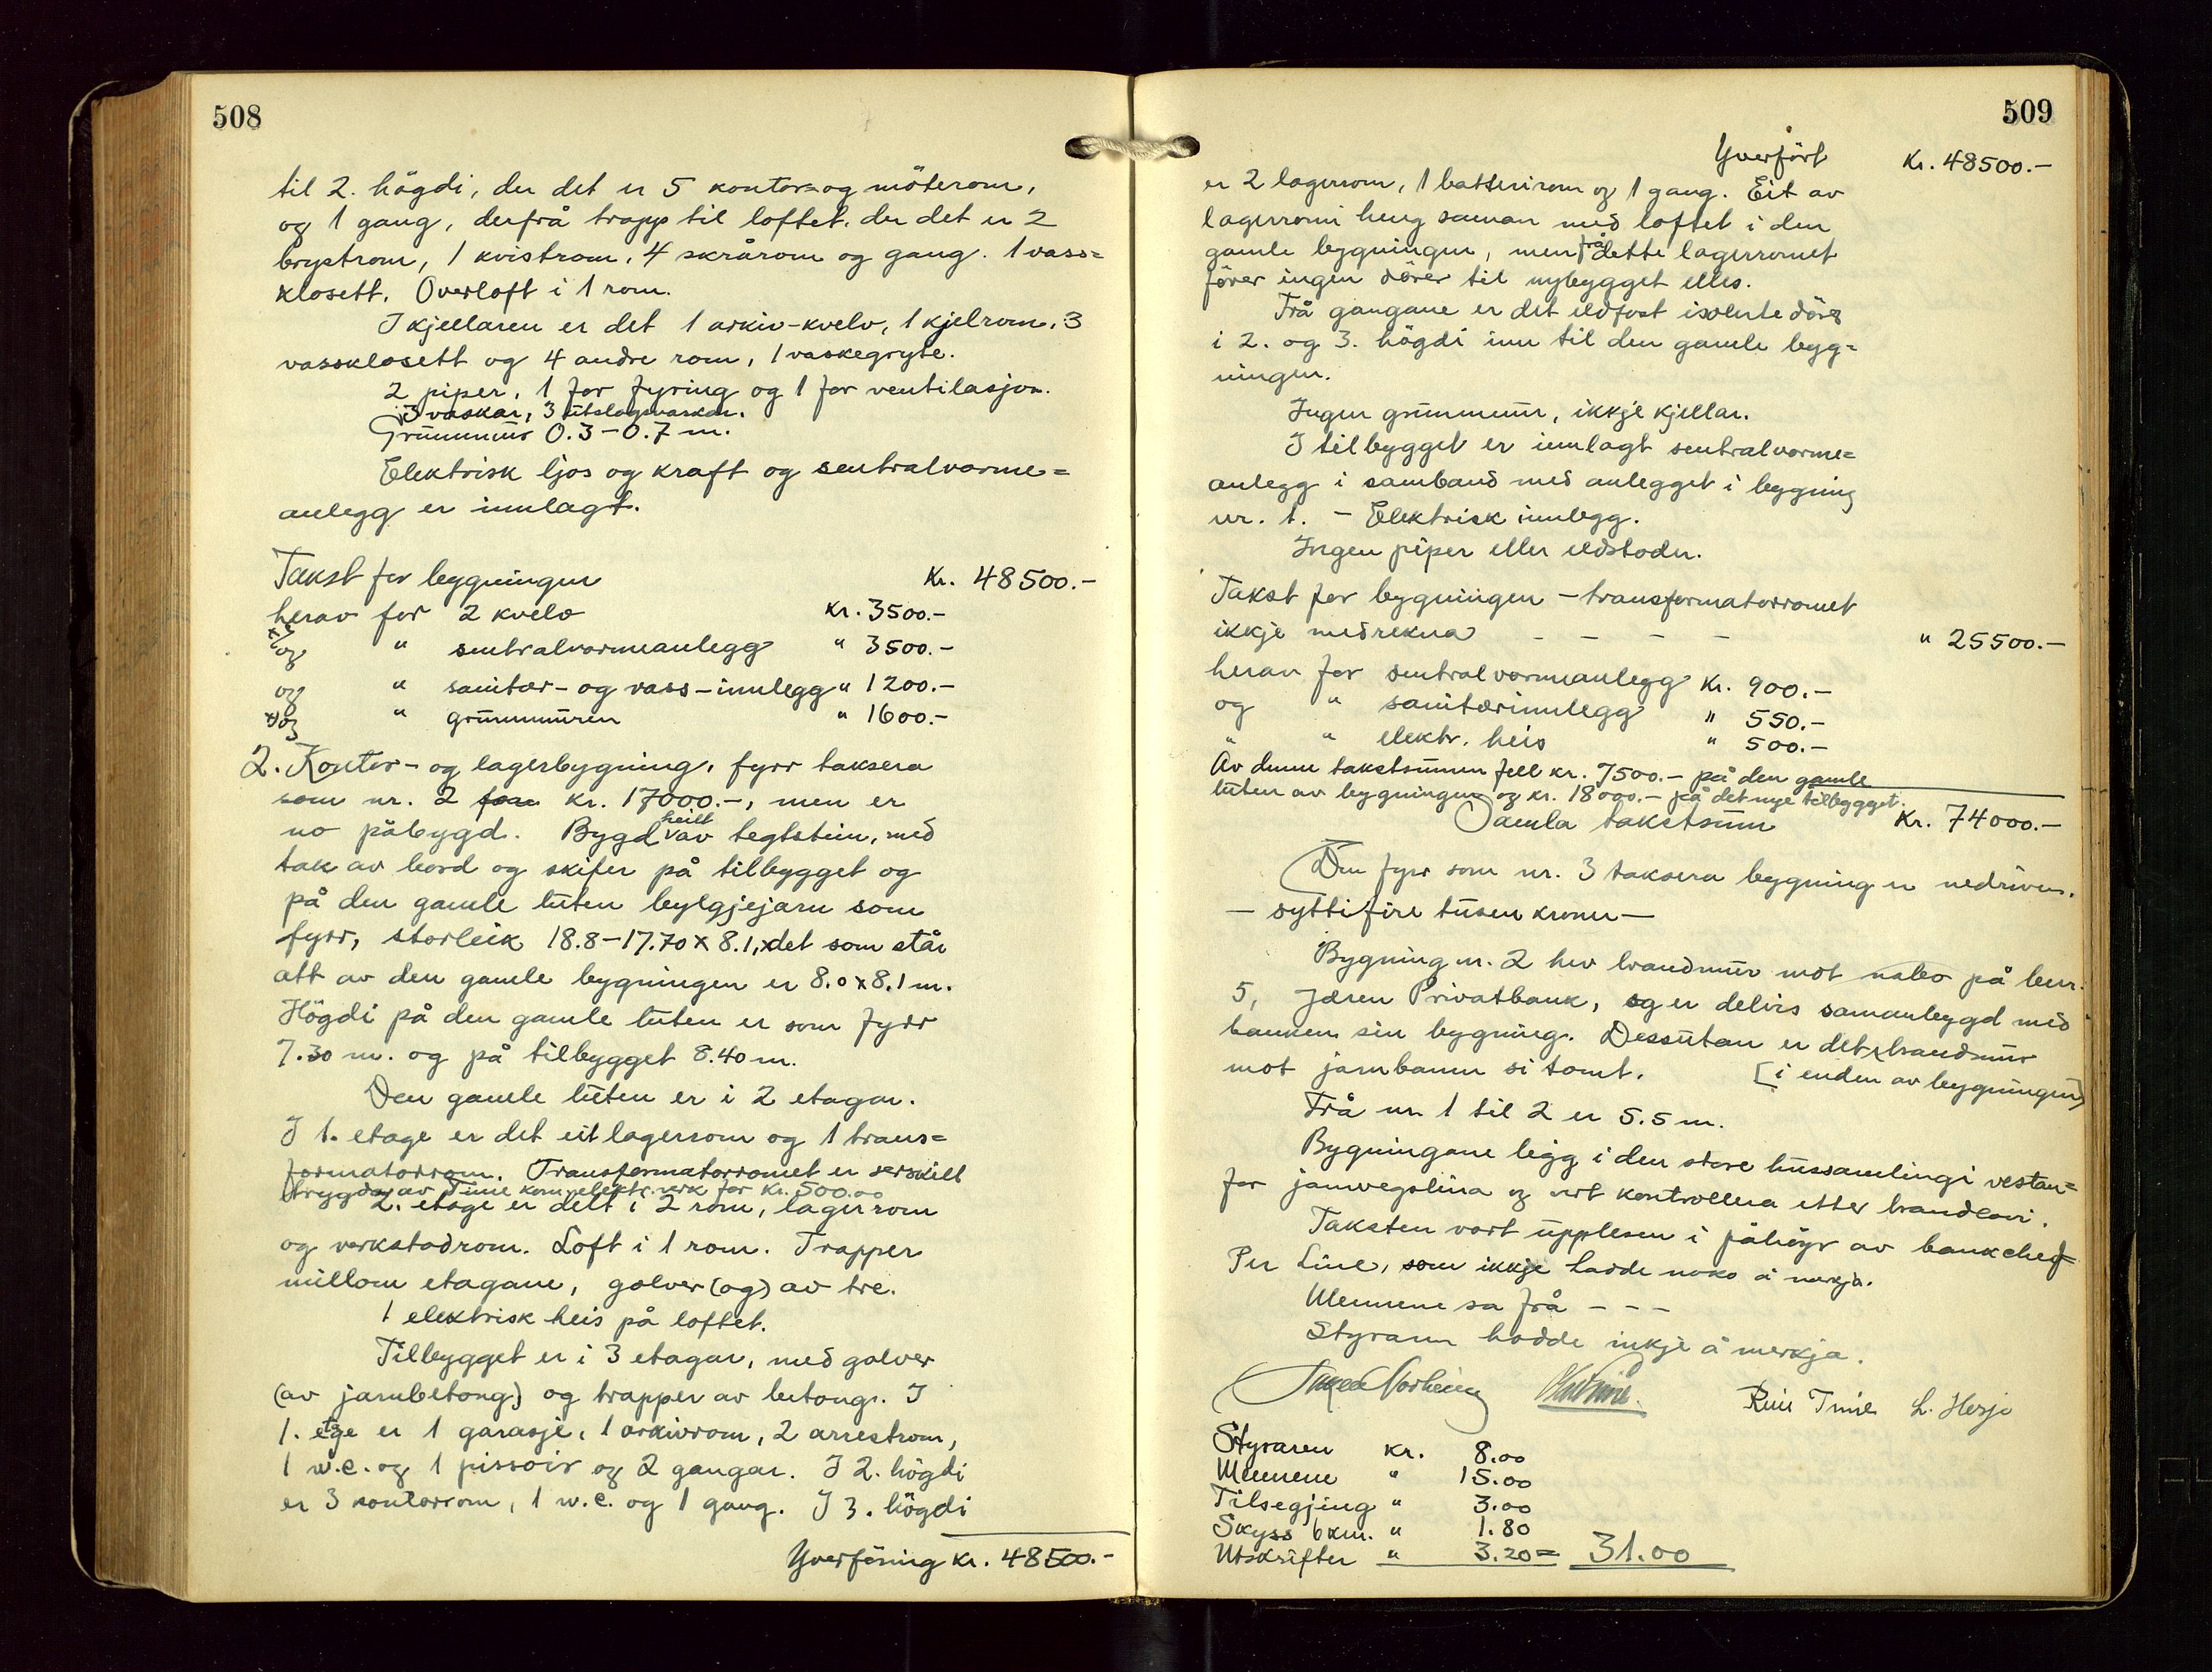 508
til 2. högdi, der det er 5 kontor- og möterom,
og 1 gang, derfrå trapp til loftet. der det er 2
brystrom, 1 kvistrom, 4 skrårom og gang. 1 vass=
klosett. Overloft i 1 rom.
I kjellaren er det 1 arkiv-kvelv, 1 kjelrom, 3
vassklosett og 4 andre rom, 1 vaskegryte.
2 piper, 1 for fyring og 1 for ventilasjon.
3 vaskar, 3 utslagsvaskar.
Grunnmur 0.3-0.7 m.
Elektrisk ljos og kraft og sentralvarme=
anlegg er innlagt.
Takst for bygningen Kr. 48500.-
herav for 2 kvelv Kr. 3500.-
og " sentralvarmeanlegg " 3500.-
og " sanitær- og vass-innlegg " 1200.-
og " grunnmuren " 1600.-
2. Kontor- og lagerbygning, fyrr taksera
som nr. 2 for kr. 17000.-, men er
no påbygd. Bygd heilt av teglstein, med
tak av bord og skifer på tilbygget og
på den gamle luten bylgjejarn som
fyrr, storleik 18.8-17.70 x 8.1, det som står
att av den gamle bygningen er 8.0 x 8.1 m.
Högdi på den gamle luten er som fyrr
7.30 m. og på tilbygget 8.40 m.
Den gamle luten er i 2 etagar.
I 1. etage er det eit lagerrom og 1 trans=
formatorrom. Transformatorromet er serskilt
trygda av Time kom. elektr. verk for Kr. 500.00
2. etage er delt i 2 rom, lagerrom
og verkstadrom. Loft i 1 rom. Trapper
millom etagane, golver (og) av tre.
1 elektrisk heis på loftet.
Tilbygget er i 3 etagar, med golver
(av jarnbetong) og trapper av betong. I
1. etge er 1 garasje, 1 arkivrom, 2 arrestrom,
1 w.c. og 1 pissoir og 2 gangar. I 2. högdi
er 3 kontorrom, 1 w.c. og 1 gang. I 3. högdi
Yverföring kr. 48500.-
509
Yverfört Kr. 48500.-
er 2 lagerrom, 1 batterirom og 1 gang. Eit av
lagerromi heng saman med loftet i den
gamle bygningen, men frå dette lagerromet
förer ingen dörer til nybygget elles.
Frå gangane er det eldfast isolerte dörer
i 2. og 3. högdi inn til den gamle byg=
ningen.
Ingen grunnmur, ikkje kjellar.
I tilbygget er innlagt sentralvarme=
anlegg i samband med anlegget i bygning
nr. 1. - Elektrisk innlegg.
Ingen piper eller eldstoder.
Takst for bygningen - transformatorromet
ikkje medrekna - - - - " 25500.-
herav for sentralvarmeanlegg Kr. 900.-
og " sanitærinnlegg " 550.-
" " elektr. heis " 500.-
Av denne takstsummen fell kr. 7500.- på den gamle
luten av bygningen og kr. 18000.- på det nye tilbygget.
Samla takstsum Kr. 74000.-
Den fyrr som nr. 3 taksera bygning er nedriven.
- syttifire tusen kroner -
Bygning nr. 2 hev brandmur mot nabo på bnr.
5, Jæren Privatbank, og er delvis samanbygd med
banken sin bygning. Dessutan er det brandmur
mot jarnbanen si tomt. [i enden av bygningen]
Frå nr. 1 til 2 er 5.5 m.
Bygningane ligg i den store hussamlingi vestan=
for jarnvegslina og vert kontrollera etter brandlovi.
Taksten vart upplesen i påhöyr av bankchef
Per Line, som ikkje hadde noko å merkja.
Mennene sa frå - - -
Styraren hadde inkje å merkja.
Rein Time L. Herje
Styraren kr. 8.00
Mennene " 15.00
Tilsegjing " 3.00
Skyss 6 km. " 1.80
Utskrifter " 3.20 = 31.00